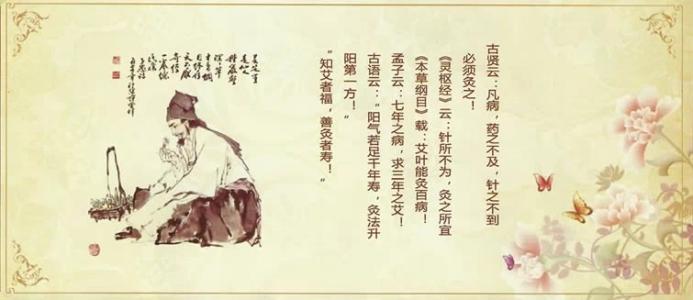 古贤云：凡病，药之不及，针之不到
必须灸之！
《灵枢经》云：针所不为，灸之所宜
《本草纲目》载：艾叶能灸百病！
孟子云：七年之病，求三年之艾！
古语云：“阳气若足千年寿，灸法升
阳第一方！”
“知艾者福，善灸者寿！”